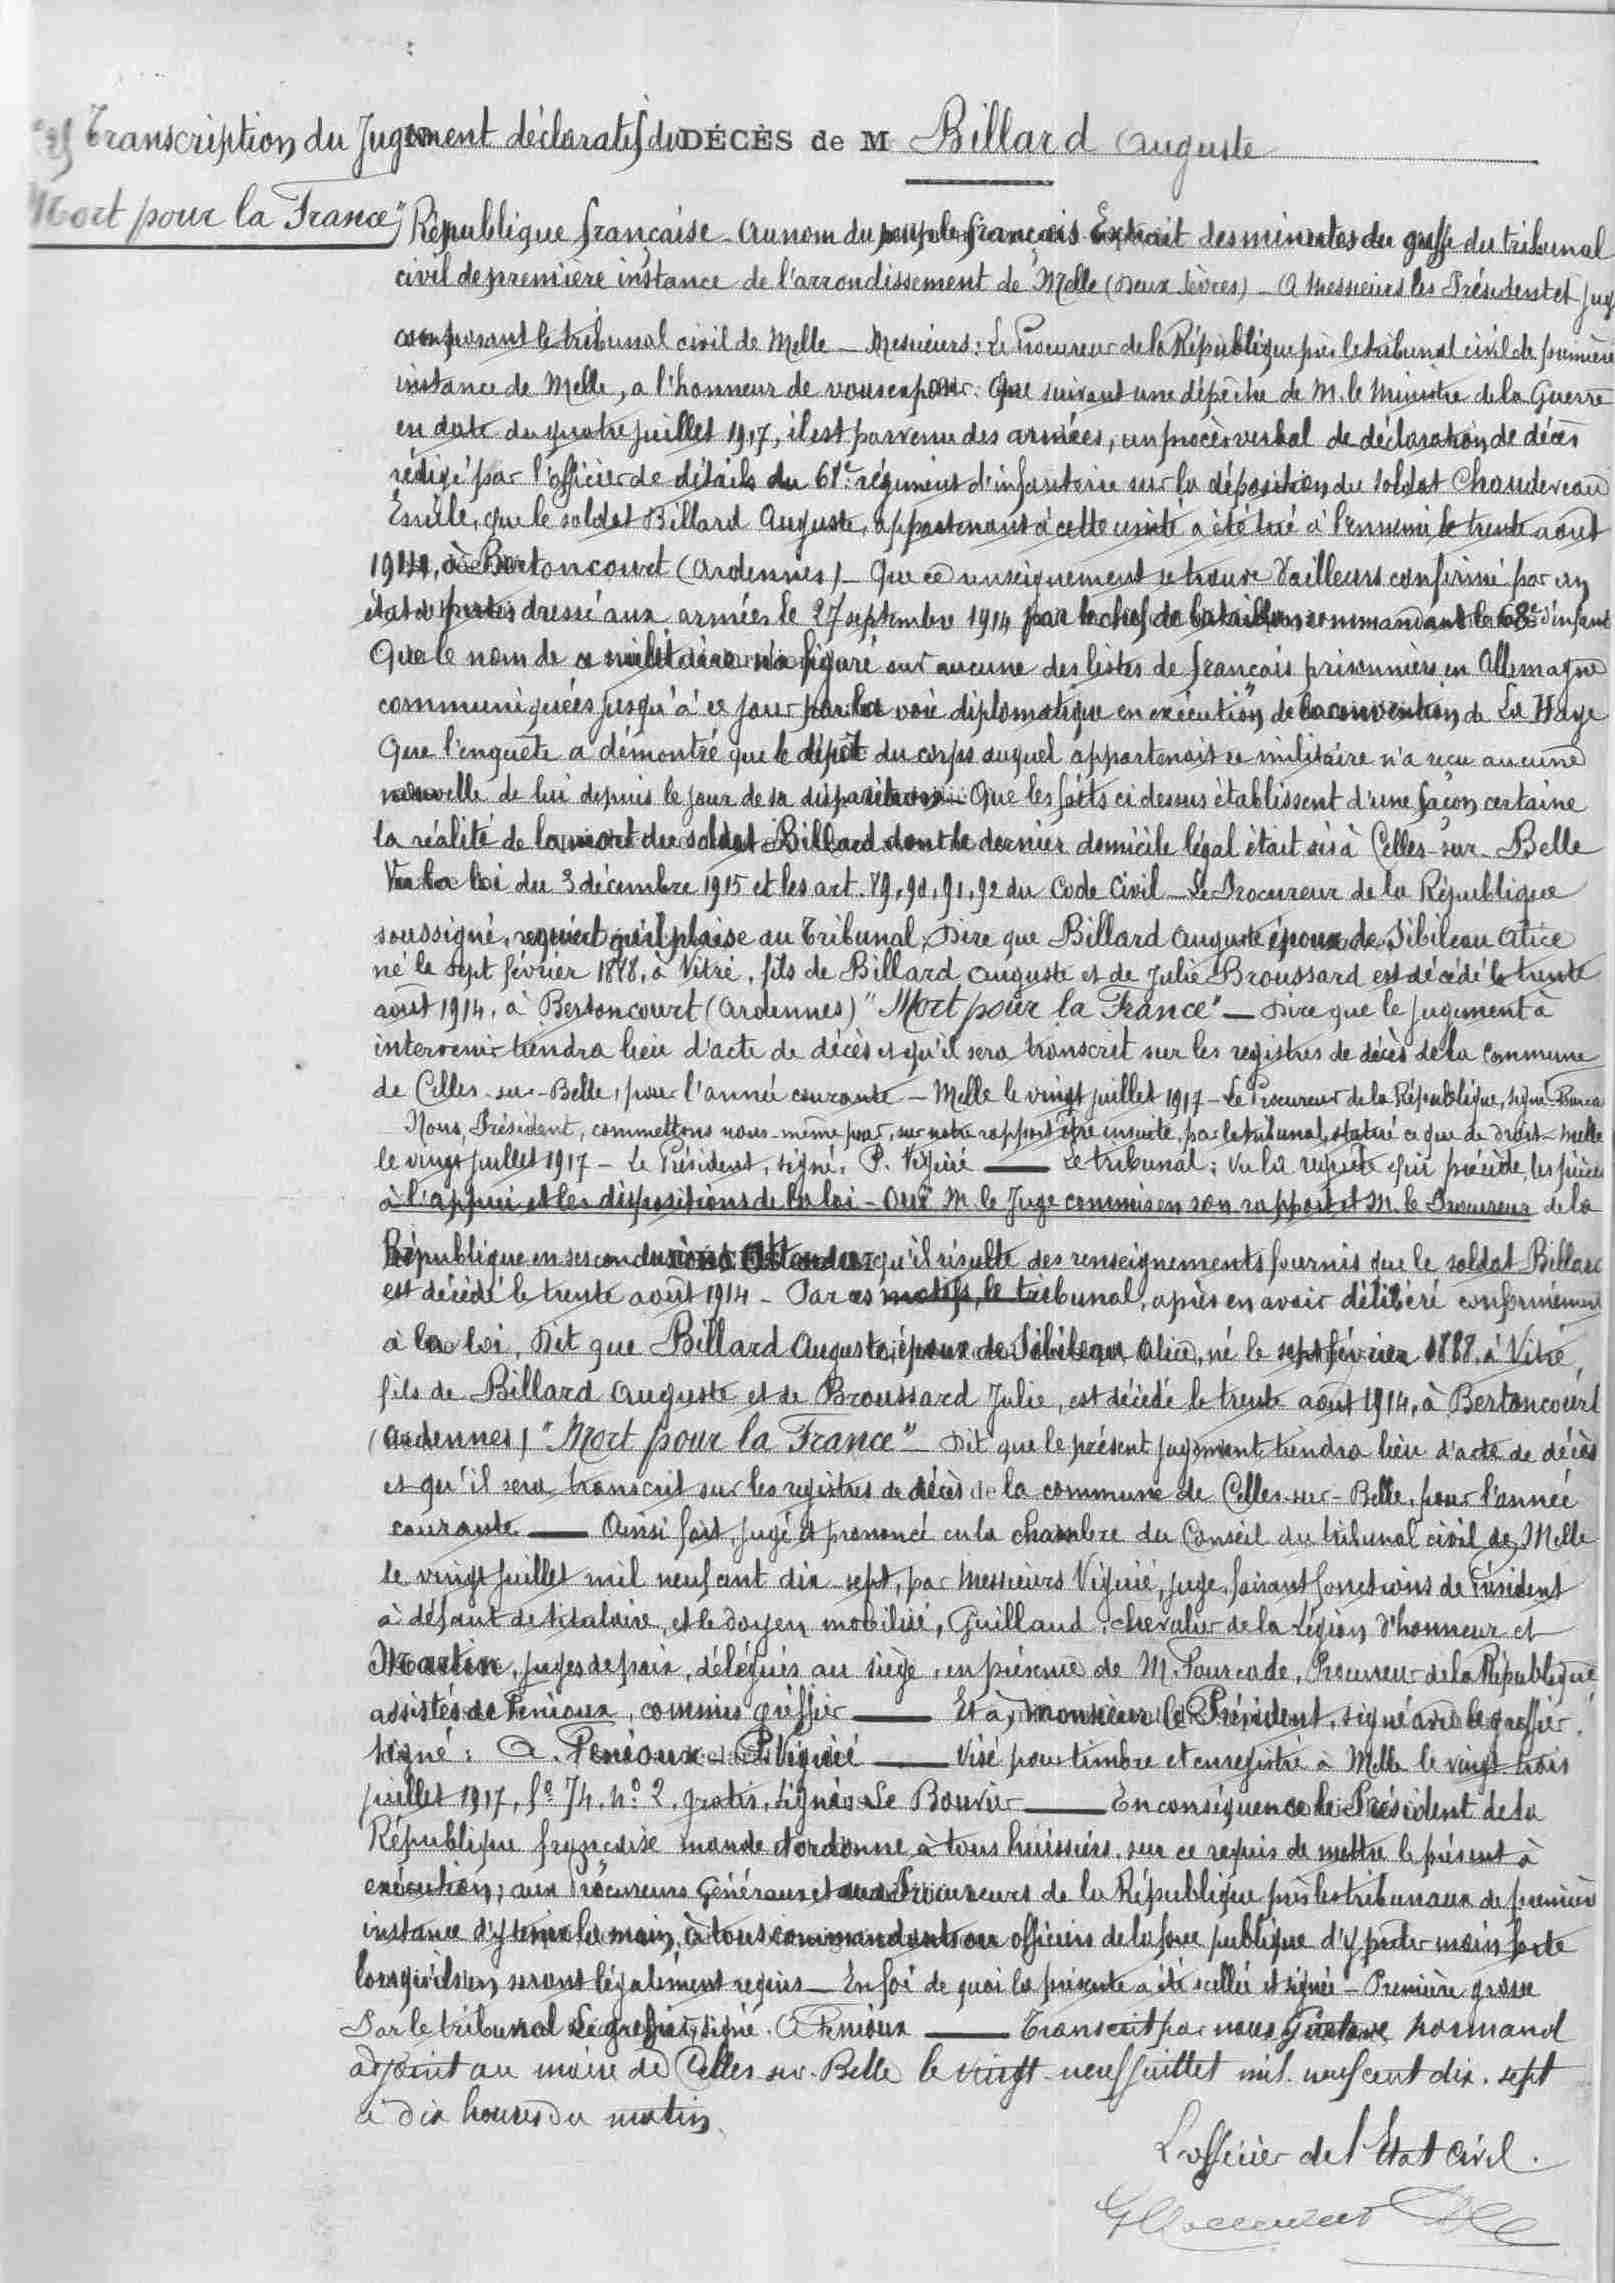 Transcription du Jugement déclaratif du DÉCÈS de M Billard Auguste
"Mort pour la France"
République française - Au nom du peuple français Extrait des minutes du greffe du tribunal
civil de première instance de l'arrondissement de Melle (Deux Sèvres) - A Messieurs les Président et Jug
composant le tribunal civil de Melle - Messieurs : Le Procureur de la République près le tribunal civil de première
instance de Melle, a l'honneur de vous exposer : Que suivant une dépêche de M. le Ministre de la Guerre
en date du quatre juillet 1917, il est parvenu des armées, un procès verbal de déclaration de décès
rédigé par l'officier de détails du 68e régiment d'infanterie sur la déposition du soldat Chaudereau
Emile, que le soldat Billard Auguste, appartenant à cette unité a été tué à l'ennemi le trente août
1914, à Bertoncourt (Ardennes) - Que ce renseignement se trouve d'ailleurs confirmé par un
état de pertes dressé aux armées le 27 septembre 1914 par le chef de bataillon commandant le 68e d'infant
Que le nom de ce militaire n'a figuré sur aucune des listes de français prisonniers en Allemagne
communiquées jusqu'à ce jour par la voie diplomatique en exécution de la convention de La Haye
Que l'enquête a démontré que le dépôt du corps auquel appartenait ce militaire n'a reçu aucune
nouvelle de lui depuis le jour de sa disparition - Que les faits ci dessus établissent d'une façon certaine
la réalité de la mort du soldat Billard dont le dernier domicile légal était sis à Celles-sur-Belle
Vu la loi du 3 décembre 1915 et les art. 89, 90, 91, 92 du Code Civil - Le Procureur de la République
soussigné, requiert qu'il plaise au Tribunal, Dire que Billard Auguste époux de Sibileau Alice
né le sept février 1888, à Vitré, fils de Billard Auguste et de Julie Broussard est décédé le trente
août 1914, à Bertoncourt (Ardennes) "Mort pour la France" - Dire que le jugement à
intervenir tiendra lieu d'acte de décès et qu'il sera transcrit sur les registres de décès de la commune
de Celles-sur-Belle, pour l'année courante - Melle le vingt juillet 1917 - Le Procureur de la République, signé
Nous, Président, commettons nous-même pour, sur notre rapport être ensuite, par le tribunal, statué ce que de droit - Melle
le vingt juillet 1917 - Le Président, signé, P. Viguié — Le tribunal : Vu la requête qui précède, les pièces
à l'appui et les dispositions de la loi - Ouï M. le Juge commis en son rapport et M. le Procureur de la
République en ses conclusions Attendu qu'il résulte des renseignements fournis que le soldat Billard
est décédé le trente août 1914 - Par ces motifs, le tribunal, après en avoir délibéré conformément
à la loi, Dit que Billard Auguste, époux de Sibileau Alice, né le sept février 1888, à Vitré,
fils de Billard Auguste et de Broussard Julie, est décédé le trente août 1914, à Bertoncourt
(Ardennes) "Mort pour la France" - Dit que le présent jugement tiendra lieu d'acte de décès
et qu'il sera transcrit sur les registres de décès de la commune de Celles-sur-Belle, pour l'année
courante — Ainsi fait, jugé et prononcé en la chambre du Conseil du tribunal civil de Melle
le vingt juillet mil neuf cent dix-sept, par Messieurs Viguié, juge, faisant fonctions de Président
à défaut de titulaire, et le doyen mobilisé, Guilland, chevalier de la Légion d'honneur et
Martin, juges de paix, délégués au siège, en présence de M. Fourcade, Procureur de la République
assistés de Fenioux, commis greffier — Et a, monsieur le Président, signé avec le greffier.
Signé : A. Fenioux et P. Viguié — Visé pour timbre et enregistré à Melle le vingt trois
juillet 1917, fo 74, no 2, gratis, signé Le Bouvier — En conséquence le Président de la
République française mande et ordonne à tous huissiers, sur ce requis de mettre le présent à
exécution ; aux Procureurs Généraux et aux Procureurs de la République près les tribunaux de première
instance d'y tenir la main, à tous commandants ou officiers de la force publique d'y prêter main forte
lorsqu'ils en seront légalement requis - En foi de quoi la présente a été scellée et signée - Première grosse
Par le tribunal Le greffier, signé. A Fenioux — Transcrit par nous Gustave Normand
adjoint au maire de Celles-sur-Belle le vingt-neuf juillet mil-neuf cent dix-sept
à dix heures du matin.
L'officier de l'Etat Civil.